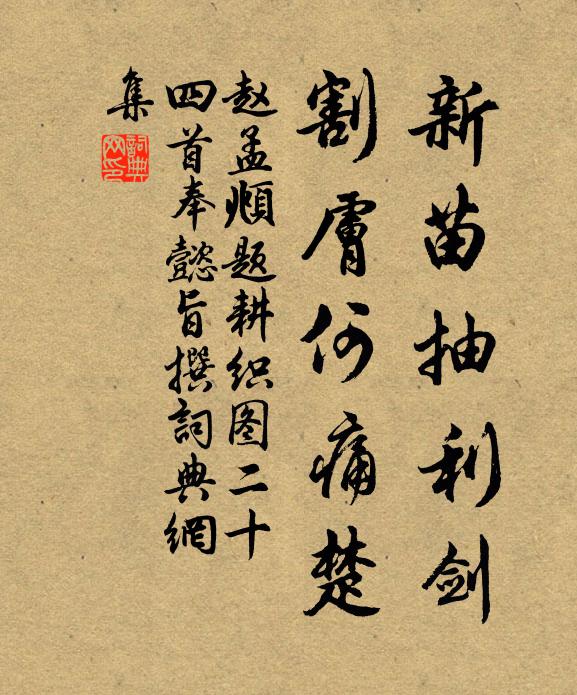 新苗抽利剑
割膚何痛楚
赵孟頫题耕织图二十
四首奉懿旨撰詞典網
集
詞典網印